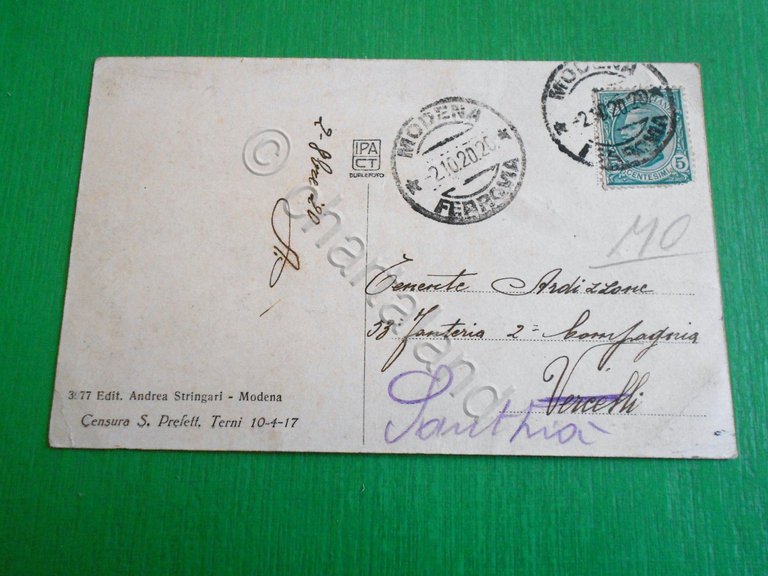 MODENA
-2.10.20.20
FERROVIA
MODENA
-2.10.20.20
5
CENTESIMI
IPA
CT
2-
20
MO
Tenente Ardizzone
53ª Fanteria 2ª Compagnia
Vercelli
Santhià
3177 Edit. Andrea Stringari - Modena
Censura S. Prefett. Terni 10-4-17
© chartaland